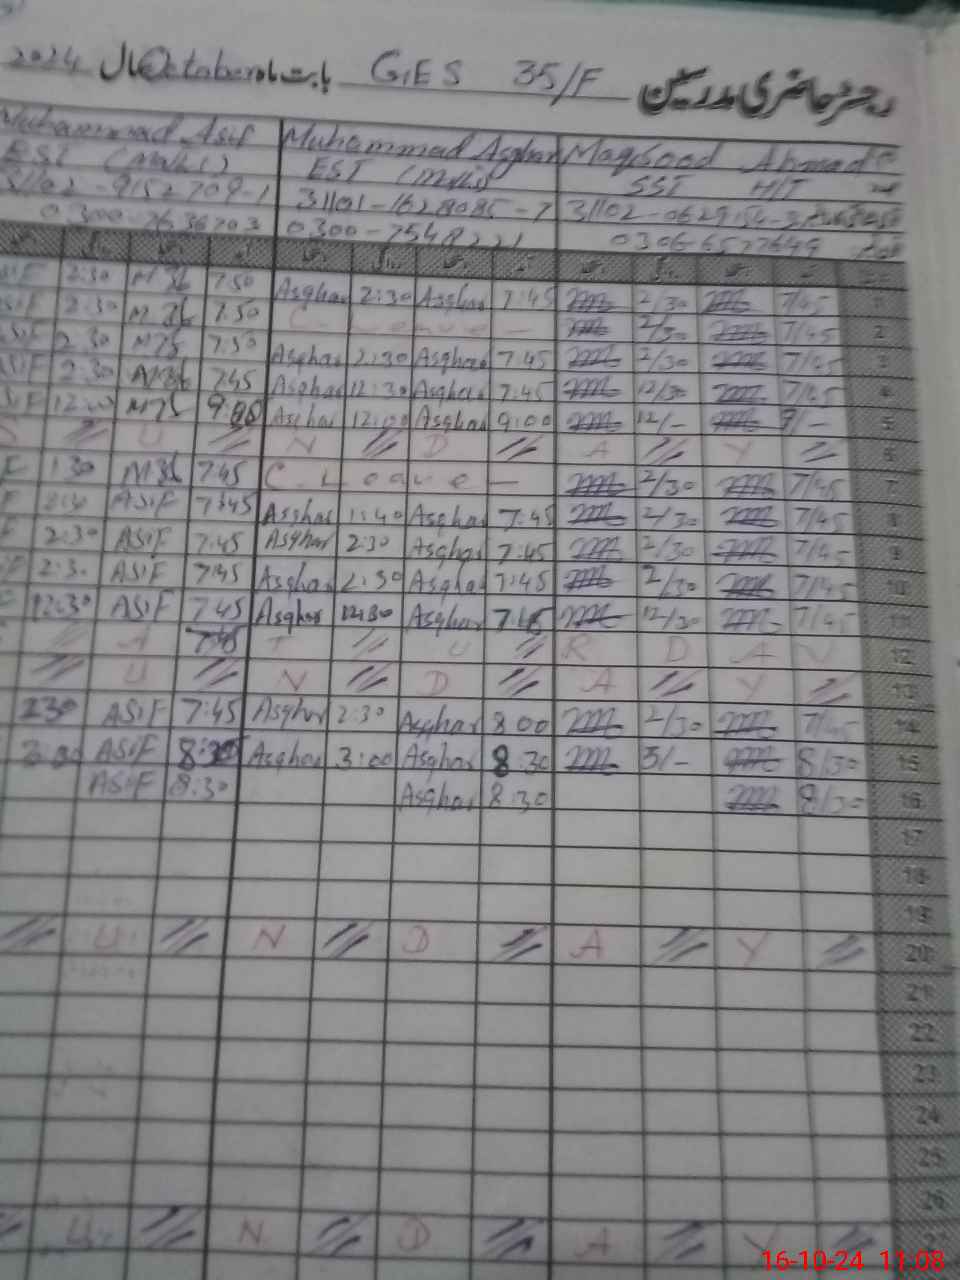 رجسٹر حاضری مدرسین G.E.S 35/F بابت ماہ October سال 2024
Muhammad Asif Muhammad Asghar Maqsood Ahmad
EST EST SST H/T
31102-9152709-1 31101-1628085-7 31102-0629154-
0300-7636703 0300-7548221 0306-6577649
2:30 M 36 7:50 Asghar 2:30 Asghar 7:45 2/30 7/45 1
2:30 M 36 7:50 C. Leave 2/30 7/45 2
2:30 M75 7:50 Asghar 2:30 Asghar 7:45 2/30 7/45 3
2:30 M36 7:45 Asghar 12:30 Asghar 7:45 12/30 7/45 4
12:00 M75 9:00 Asghar 12:00 Asghar 9:00 12/- 9/- 5
S U N D A Y 6
1:30 M36 7:45 C. Leave 2/30 7/45 7
ASIF 7:45 Asghar 1:40 Asghar 7:45 2/30 7/45 8
2:30 ASIF 7:45 Asghar 2:30 Asghar 7:45 2/30 7/45 9
2:30 ASIF 7:45 Asghar 2:30 Asghar 7:45 2/30 7/45 10
12:30 ASIF 7:45 Asghar 12:30 Asghar 7:45 12/30 7/45 11
A 7:45 T U R D A Y 12
U N D A Y 13
2:30 ASIF 7:45 Asghar 2:30 Asghar 8:00 2/30 7/45 14
3:00 ASIF 8:30 Asghar 3:00 Asghar 8:30 3/- 8/30 15
ASIF 8:30 Asghar 8:30 8/30 16
17
18
19
U N D A Y 20
21
22
23
24
25
26
U N D A Y 27
16-10-24 11:08